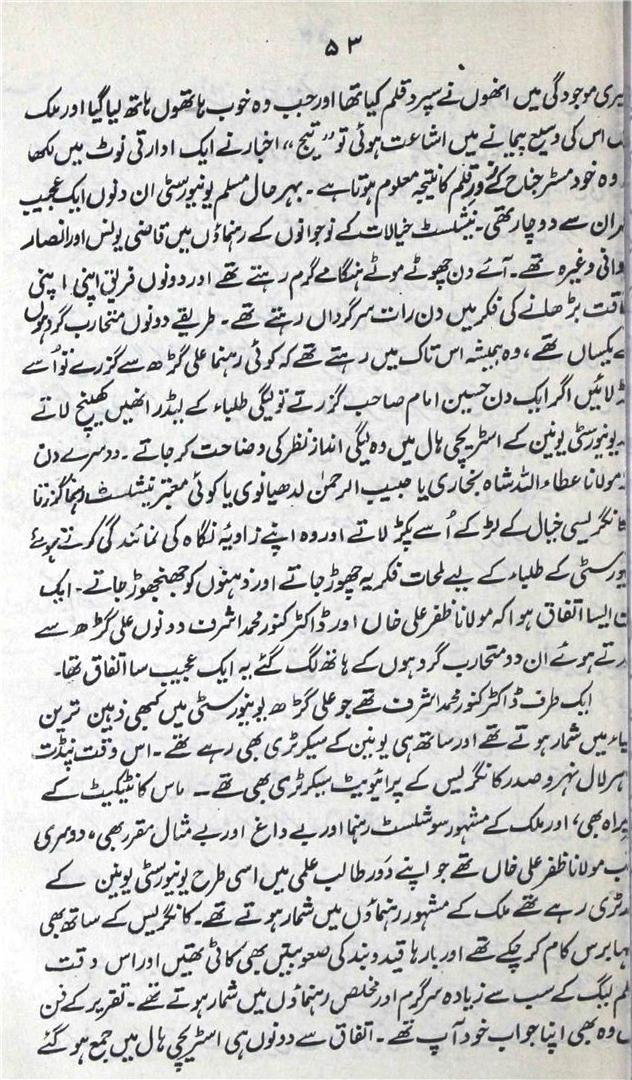 ۵۳
یری موجودگی میں انھوں نے سپرد قلم کیا تھا اور جب وہ خوب ہاتھوں ہاتھ لیا گیا اور ملک
اس کی وسیع پیمانے میں اشاعت ہوئی تو "تیج" اخبار نے ایک ادارتی نوٹ میں لکھا
وہ خود مسٹر جناح کے زورِ قلم کا نتیجہ معلوم ہوتا ہے۔ بہرحال مسلم یونیورسٹی ان دنوں ایک عجیب
ران سے دوچار تھی۔ نیشلسٹ خیالات کے نوجوانوں کے رہنماؤں میں قاضی یونس اور انصار
وانی وغیرہ تھے۔ آئے دن چھوٹے موٹے ہنگامے گرم رہتے تھے اور دونوں فریق اپنی اپنی
اقت بڑھانے کی فکر میں دن رات سرگرداں رہتے تھے۔ طریقے دونوں متحارب گروہوں
ے یکساں تھے، وہ ہمیشہ اس تاک میں رہتے تھے کہ کوئی رہنما علی گڑھ سے گزرے تو اُسے
ڑ لائیں اگر ایک دن حسین امام صاحب گزرتے تو لیگی طلباء کے لیڈر انھیں کھینچ لاتے
یونیورسٹی یونین کے اسٹریچی ہال میں وہ لیگی انداز نظر کی وضاحت کر جاتے۔ دوسرے دن
مولانا عطاء اللہ شاہ بخاری یا حبیب الرحمٰن لدھیانوی یا کوئی معتبر نیشلسٹ رہنما گزرتا
کانگریسی خیال کے لڑکے اُسے پکڑ لاتے اور وہ اپنے زاویۂ نگاہ کی نمائندگی کرتے ہوئے
یورسٹی کے طلباء کے لیے لمحات فکریہ چھوڑ جاتے اور ذہنوں کو جھنجھوڑ جاتے۔ ایک
ایسا اتفاق ہوا کہ مولانا ظفر علی خاں اور ڈاکٹر کنور محمد اشرف دونوں علی گڑھ سے
رتے ہوئے ان دو متحارب گروہوں کے ہاتھ لگ گئے یہ ایک عجیب سا اتفاق تھا۔
ایک طرف ڈاکٹر کنور محمد اشرف تھے جو علی گڑھ یونیورسٹی میں کبھی ذہین ترین
باء میں شمار ہوتے تھے اور ساتھ ہی یونین کے سیکرٹری بھی رہے تھے۔ اس وقت پنڈت
اہر لال نہرو صدر کانگریس کے پرائیویٹ سیکرٹری بھی تھے۔ ماس کانٹیکٹ کے
براہ بھی، اور ملک کے مشہور سوشلسٹ رہنما اور بے داغ اور بے مثال مقرر بھی، دوسری
ب مولانا ظفر علی خاں تھے جو اپنے دَور طالب علمی میں اسی طرح یونیورسٹی یونین کے
رٹری رہے تھے ملک کے مشہور رہنماؤں میں شمار ہوتے تھے۔ کانگریس کے ساتھ بھی
ہا برس کام کر چکے تھے اور بارہا قید و بند کی صعوبتیں بھی کاٹی تھیں اور اس وقت
لم لیگ کے سب سے زیادہ سرگرم اور مخلص رہنماؤں میں شمار ہوتے تھے۔ تقریر کے فن
ں وہ بھی اپنا جواب خود آپ تھے۔ اتفاق سے دونوں ہی اسٹریچی ہال میں جمع ہو گئے